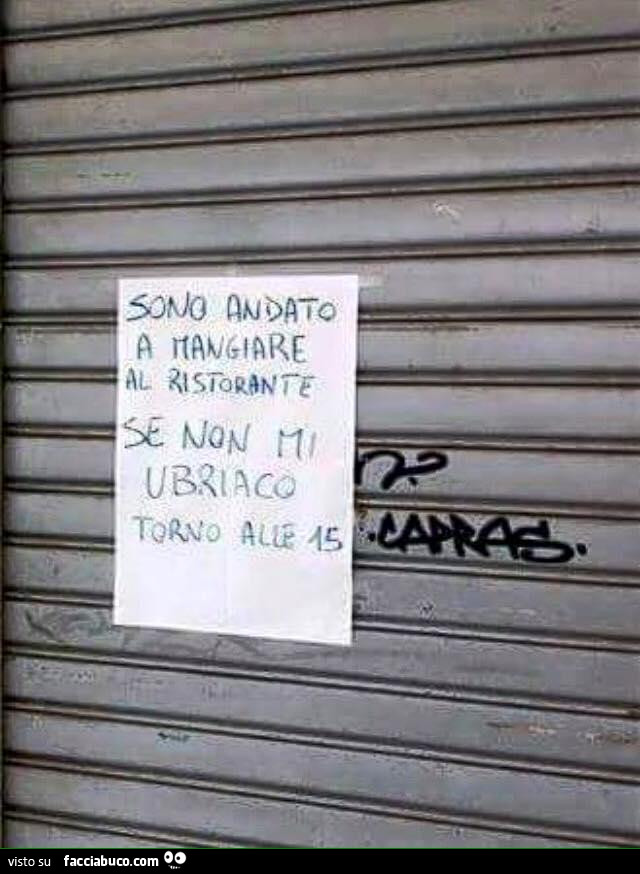 SONO ANDATO
A MANGIARE
AL RISTORANTE
SE NON MI
UBRIACO
TORNO ALLE 15
.CAPRAS.
visto su facciabuco.com